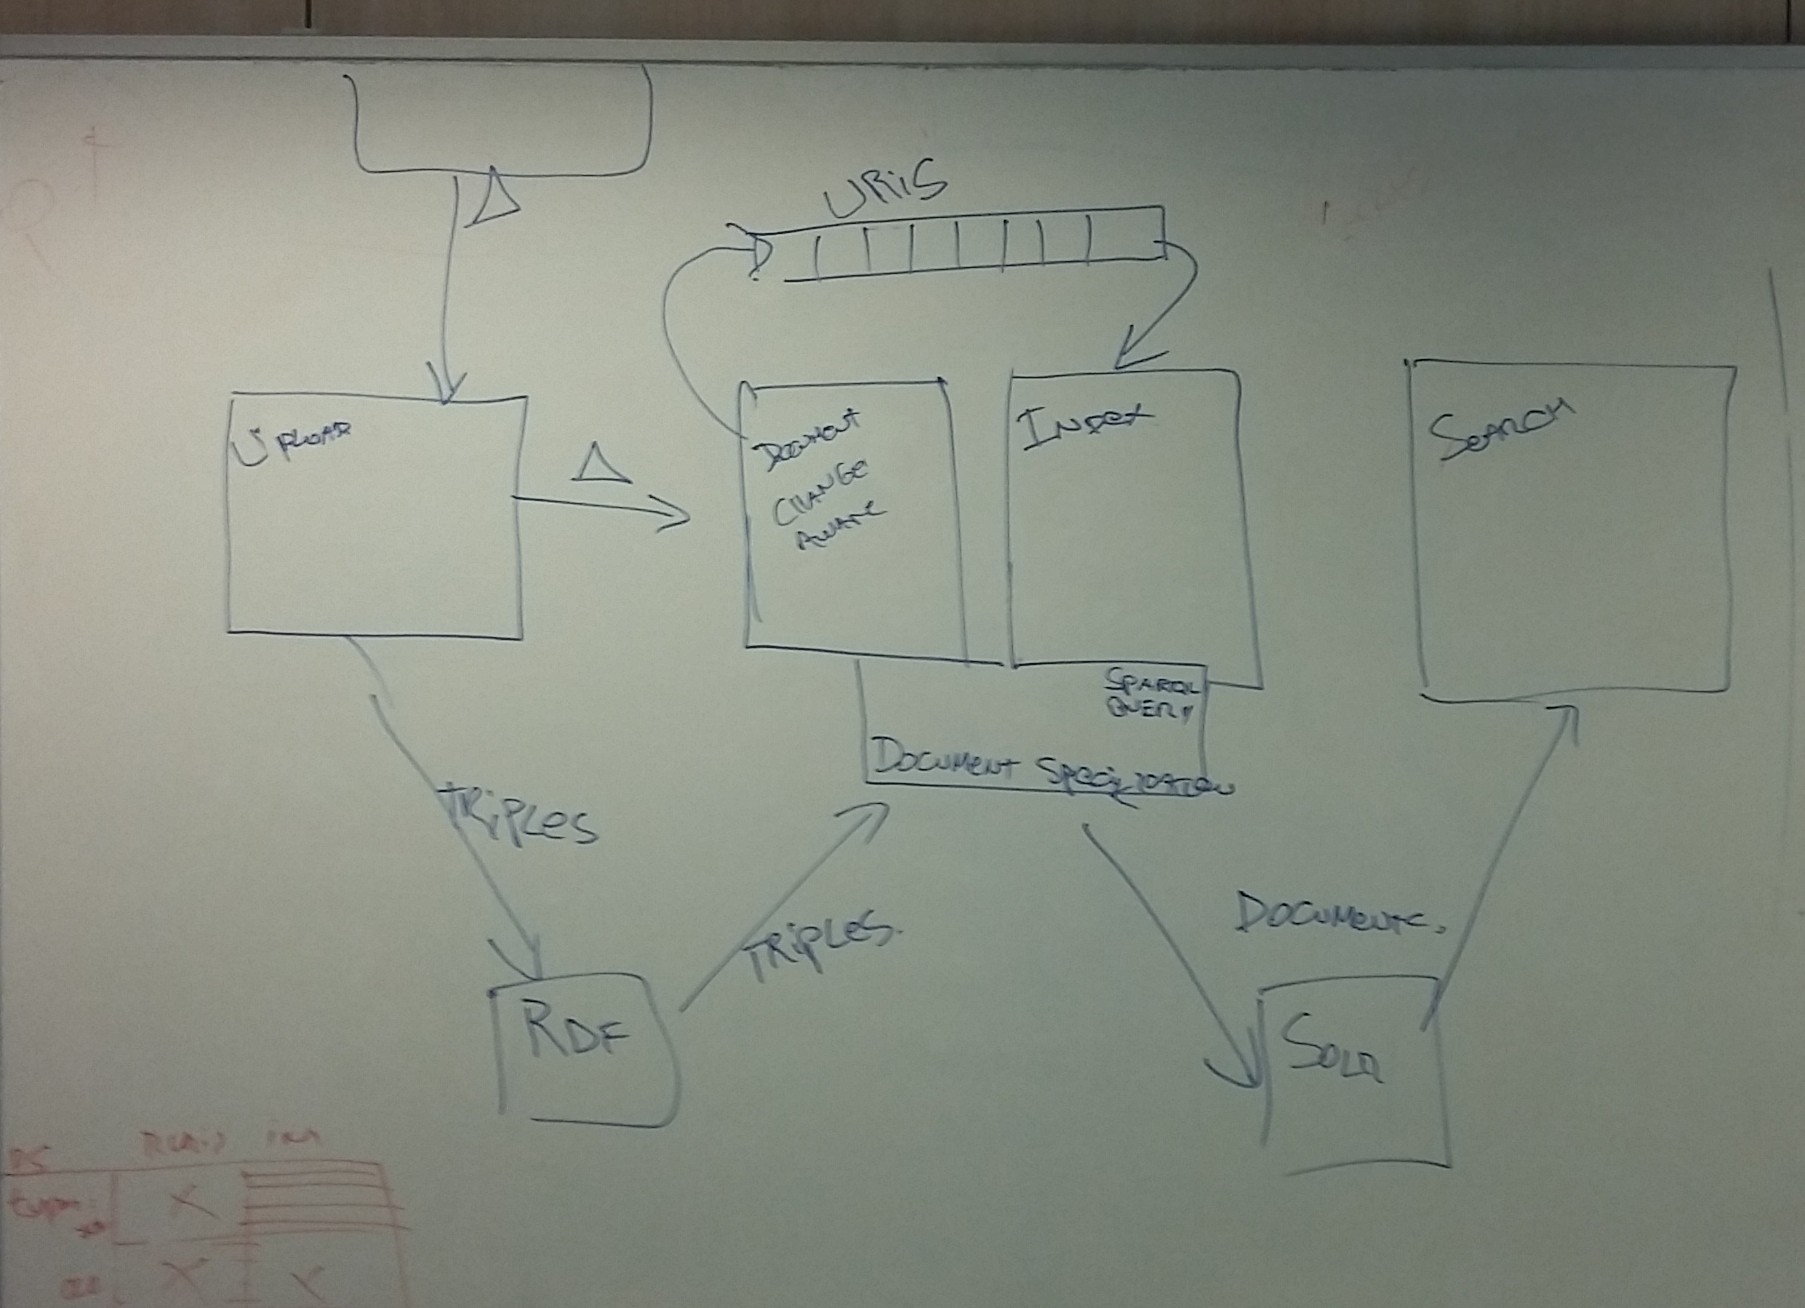 URiS
UPLOAD
Δ
Δ
DOCUMENT
CHANGE
AWARE
INDEX
SEARCH
SPARQL
QUERY
DOCUMENT Specification
TRiPLES
TRiPLES.
DOCUMENTS.
RDF
SOLR
X
X
X